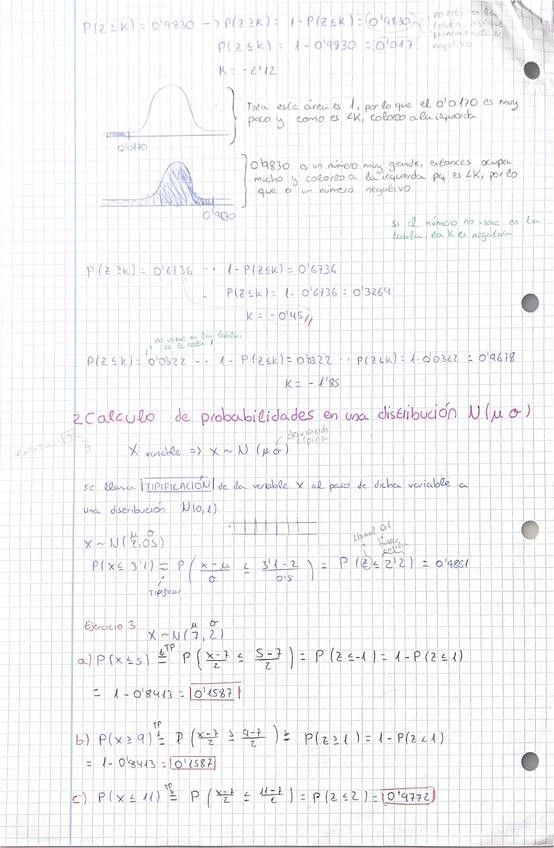 P(Z≥K) = 0'9830 → P(Z≥K) = 1 - P(Z≤K) = 0'9830
P(Z≤K) = 1 - 0'9830 = 0'017
negativo
K = -2'12
Toda esta área es 1, por lo que el 0'0170 es muy
poco y como es ≤K, coloreo a la izquierda
0'0170
0'9830 es un número muy grande, entonces ocupa
mucho y coloreo a la izquierda pq es ≤K, por lo
que es un número negativo
0'9830
si el número no viene en la
tabla, la K es negativa
P(Z≥K) = 0'6736 ·· 1 - P(Z≤K) = 0'6736
P(Z≤K) = 1 - 0'6736 = 0'3264
K = -0'45
no viene en la tabla,
P(Z≥K) = 0'0322 ·· 1 - P(Z≤K) = 0'0322 ·· P(Z≤K) = 1 - 0'0322 = 0'9678
K = -1'85
2 Calculo de probabilidades en una distribución N(μ σ)
desviación típica
X variable => X ~ N(μ σ)
se llama TIPIFICACIÓN de la variable X al paso de dicha variable a
una distribución N(0,1)
μ σ
X ~ N(2, 0'5)
Normal 0,1
P(X ≤ 3'1) = P((X-μ)/σ ≤ (3'1-2)/0'5) = P(Z ≤ 2'2) = 0'9861
Tipificar
Ejercicio 3
μ σ
X ~ N(7, 2)
a) P(X ≤ 5) TP = P((X-7)/2 ≤ (5-7)/2) = P(Z ≤ -1) = 1 - P(Z ≤ 1)
= 1 - 0'8413 = 0'1587
b) P(X ≥ 9) TP = P((X-7)/2 ≥ (9-7)/2) = P(Z ≥ 1) = 1 - P(Z < 1)
= 1 - 0'8413 = 0'1587
c) P(X ≤ 11) TP = P((X-7)/2 ≤ (11-7)/2) = P(Z ≤ 2) = 0'9772